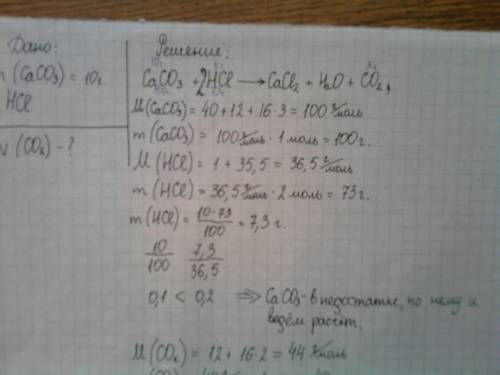 Дано:
m (CaCO₃) = 10г
HCl
ν (CO₂) - ?
Решение:
10г. x₁ x₂
CaCO₃ + 2HCl → CaCl₂ + H₂O + CO₂↑
M(CaCO₃) = 40 + 12 + 16·3 = 100 г/моль
m (CaCO₃) = 100 г/моль · 1 моль = 100г.
M (HCl) = 1 + 35,5 = 36,5 г/моль
m (HCl) = 36,5 г/моль · 2 моль = 73г.
m (HCl) = 10·73/100 = 7,3 г.
10/100 7,3/36,5
0,1 < 0,2 ⇒ CaCO₃ - в недостатке, по нему и
ведём расчёт.
M (CO₂) = 12 + 16·2 = 44 г/моль